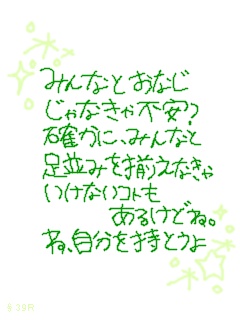 みんなとおなじ
じゃなきゃ不安?
確かに、みんなと
足並みを揃えなきゃ
いけないコトも
あるけどね。
ね、自分を持とうよ